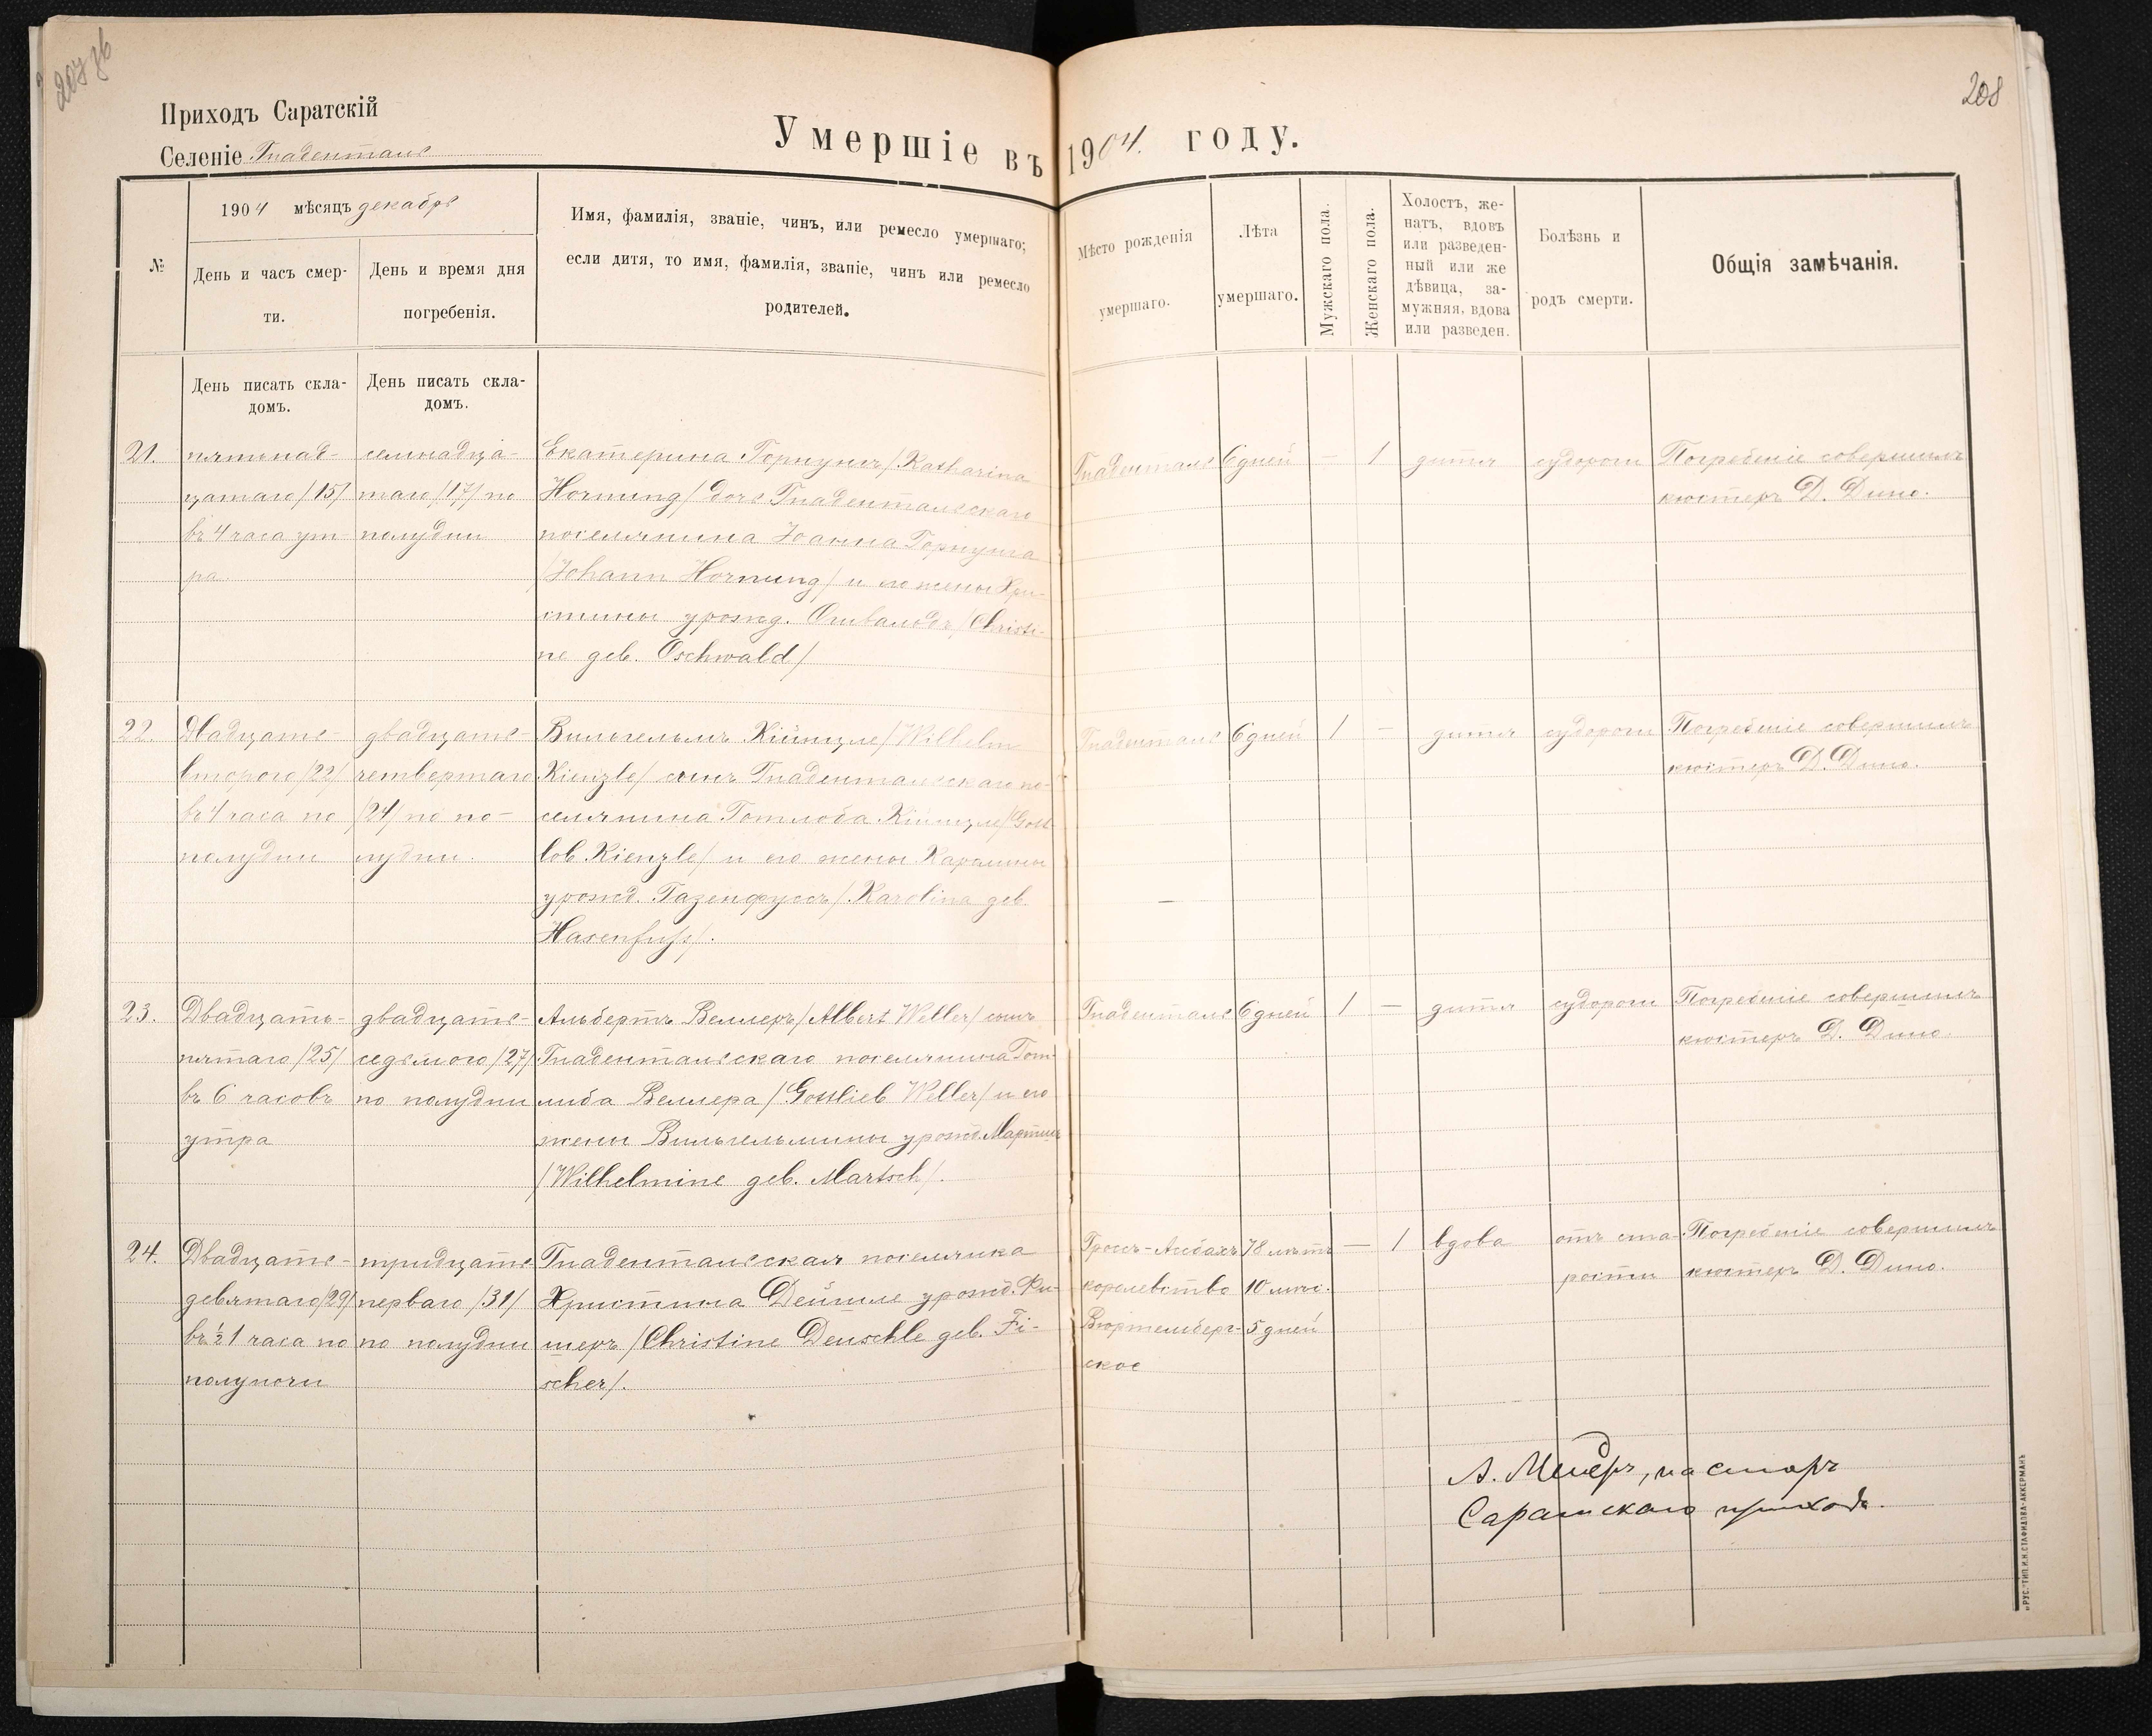 207 зв
208
Приходъ Саратскій
Селеніе Гнаденталь
Умершіе въ 1904. году.
№
1904 мѣсяцъ декабрь
День и часъ смер-
ти.
День и время дня
погребенія.
Имя, фамилія, званіе, чинъ, или ремесло умершаго;
если дитя, то имя, фамилія, званіе, чинъ или ремесло
родителей.
Мѣсто рожденія
умершаго.
Лѣта
умершаго.
Мужскаго пола.
Женскаго пола.
Холостъ, же-
натъ, вдовъ
или разведен-
ный или же
дѣвица, за-
мужняя, вдова
или разведен.
Болѣзнь и
родъ смерти.
Общія замѣчанія.
День писать скла-
домъ.
День писать скла-
домъ.
21.
пятнад-
цатаго /15/
въ 4 часа ут-
ра
семнадца-
таго /17/ по
полудни
Екатерина Горнунгъ /Katharina
Hornung/ дочь Гнадентальскаго
поселянина Іоанна Горнунга
/Johann Hornung/ и его жены Хри-
стины урожд. Ошвальдъ /Christi-
ne geb. Oschwald/
Гнаденталь
6 дней
—
1
дитя
судороги
Погребеніе совершилъ
кюстеръ Д. Дино.
22.
Двадцать-
второго /22/
въ 4 часа по
полудни
двадцать-
четвертаго
/24/ по по-
лудни.
Вильгельмъ Кіинцле /Wilhelm
Kienzle/ сынъ Гнадентальскаго по-
селянина Готлоба Кіинцле /Gott-
lob Kienzle/ и его жены Каралины
урожд. Газенфуссъ /Karolina geb.
Hasenfuss/.
Гнаденталь
6 дней
1
—
дитя
судороги
Погребеніе совершилъ
кюстеръ Д. Дино.
—
23.
Двадцать-
пятаго /25/
въ 6 часовъ
утра
двадцать-
седьмого /27/
по полудни
Альбертъ Веллеръ /Albert Weller/ сынъ
Гнадентальскаго поселянина Гот-
либа Веллера /Gottlieb Weller/ и его
жены Вильгельмины урожд. Мартшъ
/Wilhelmine geb. Martsch/.
Гнаденталь
6 дней
1
—
дитя
судороги
Погребеніе совершилъ
кюстеръ Д. Дино
24.
Двадцать-
девятаго /29/
въ ½ 1 часа по
полуночи
тридцать
перваго /31/
по полудни
Гнадентальская поселянка
Христина Дейшле урожд. Фи-
шеръ /Christine Deuschle geb. Fi-
scher/.
Гросъ-Асбахъ
королевство
Вюртемберг-
ское
78 лѣтъ
10 мѣс.
5 дней
—
1
вдова
отъ ста-
рости
Погребеніе совершилъ
кюстеръ Д. Дино.
пасторъ
Саратскаго прихода.
«РУС.» ТИП. И.Н. СТАФИДОВА - АККЕРМАНЪ